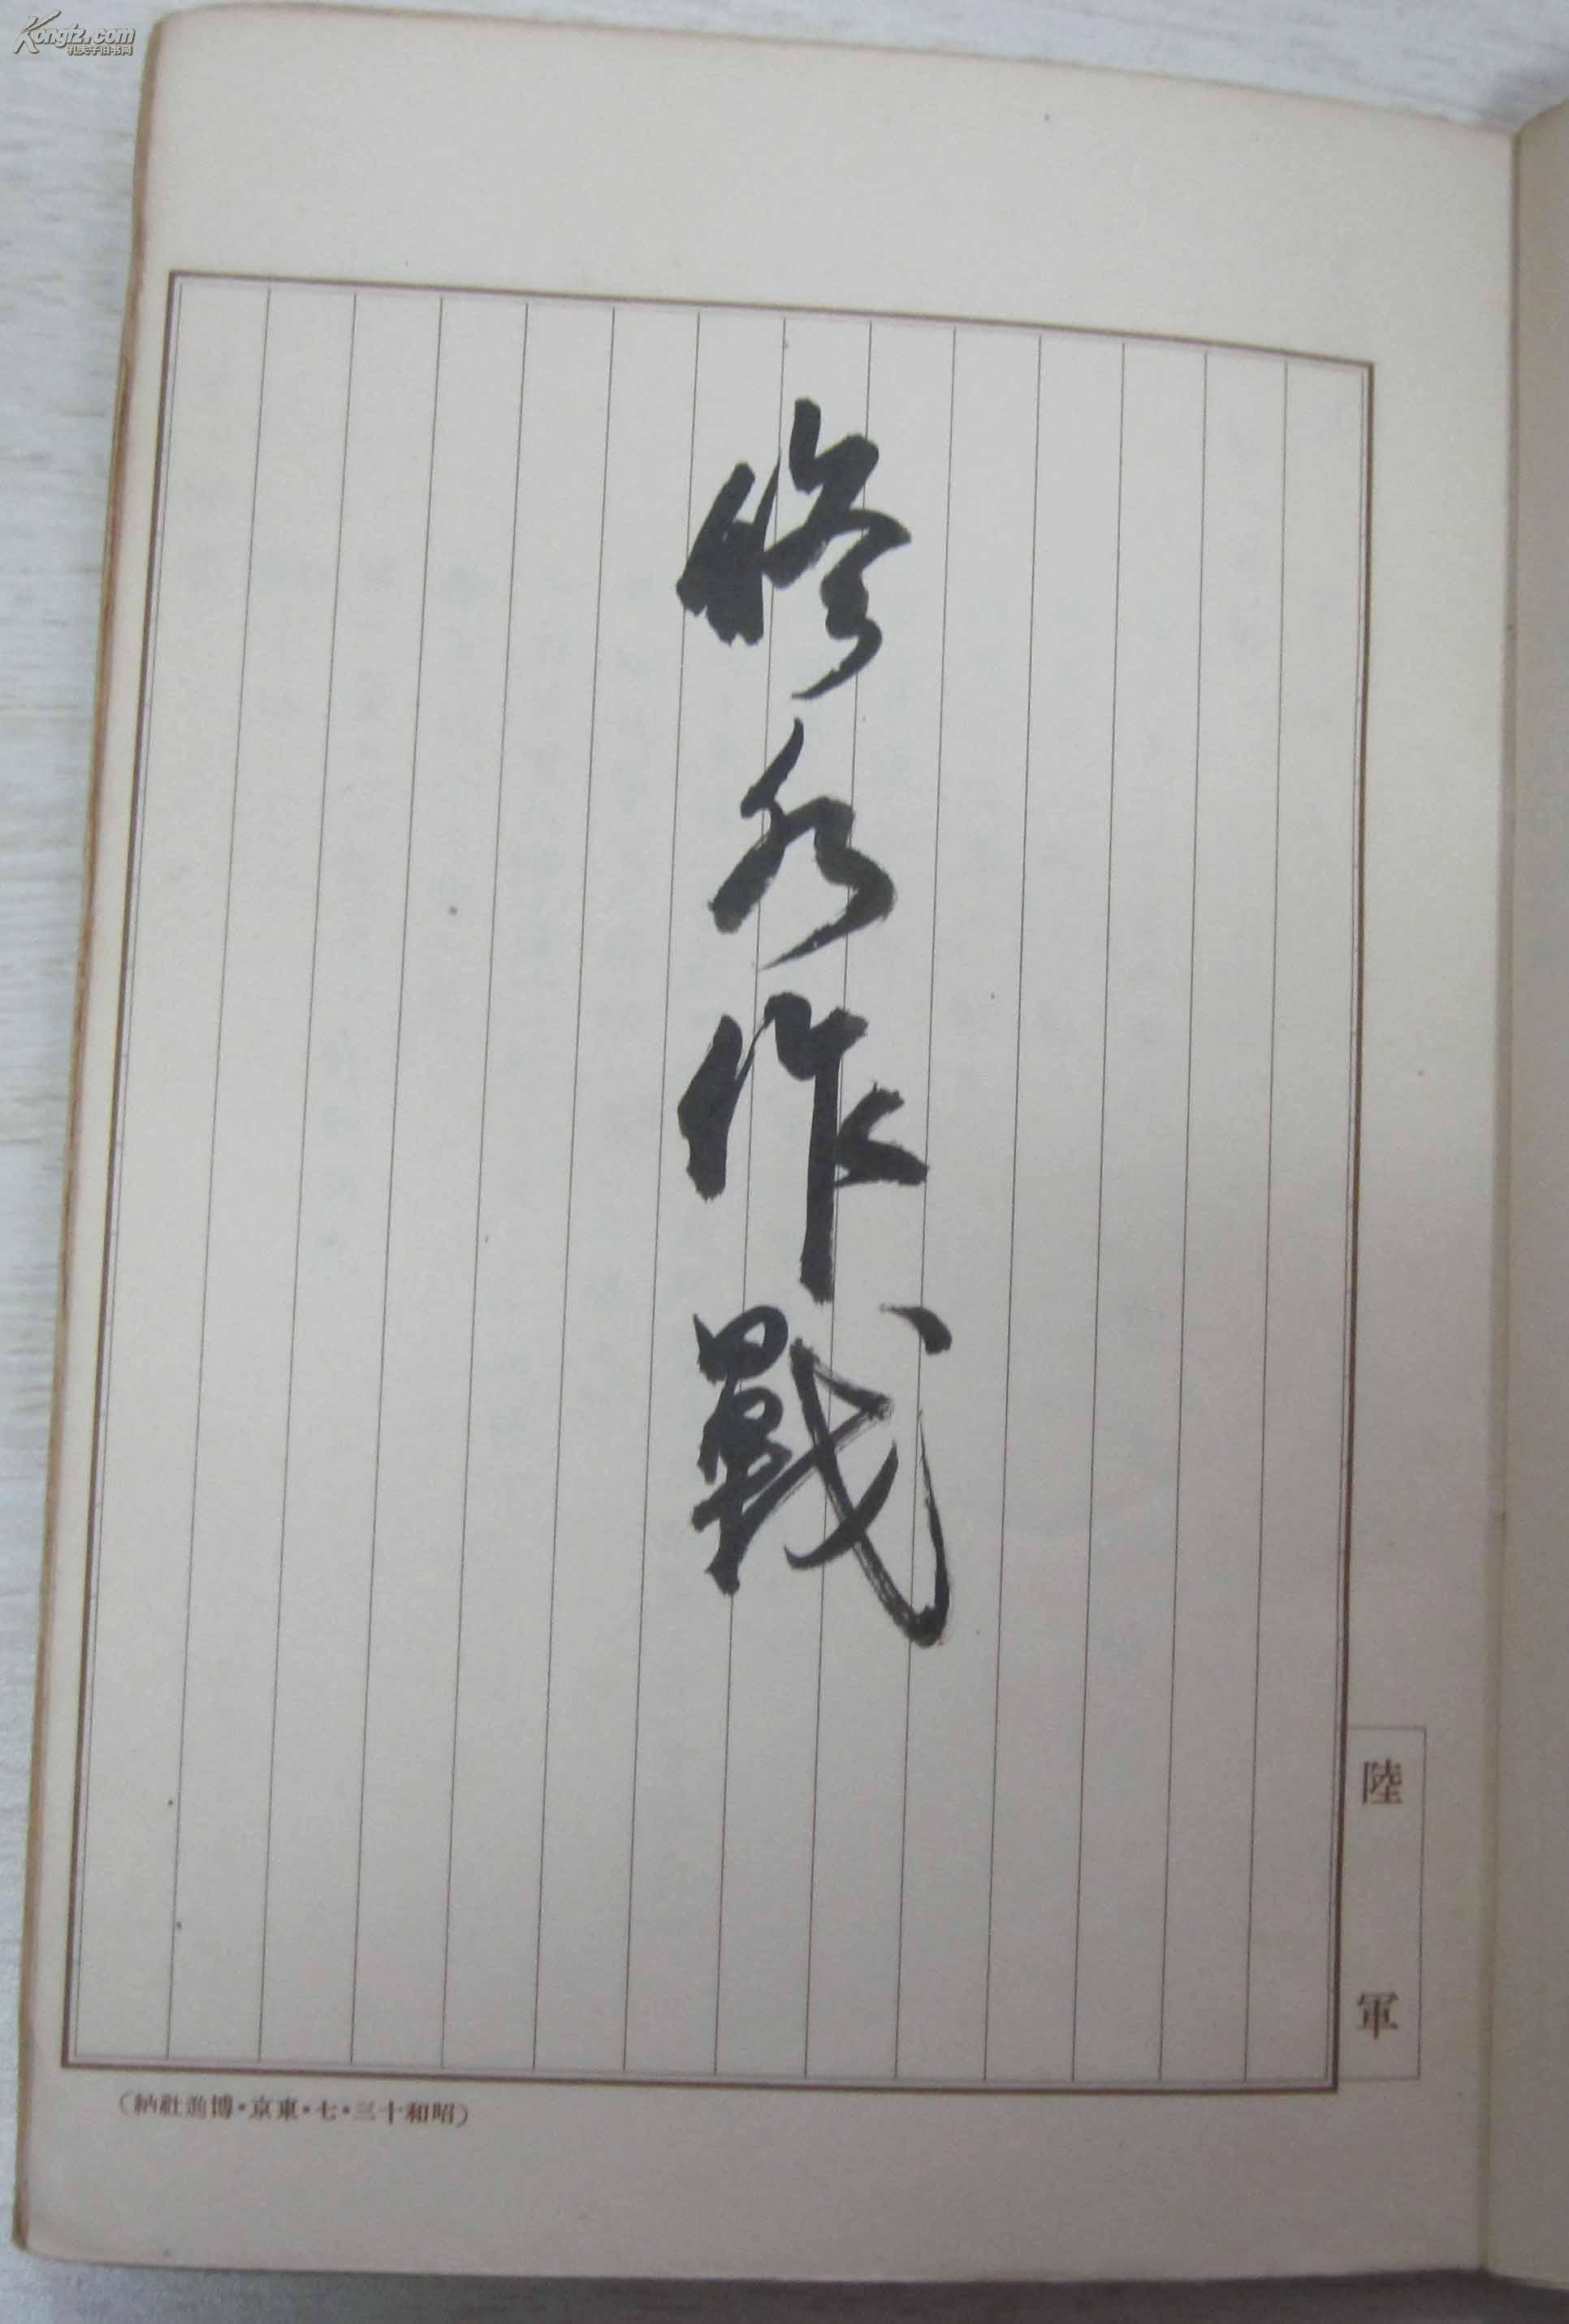 Kongfz.com
孔夫子旧书网
修水作戰
陸軍
(納社進博・京東・七・三十和昭)